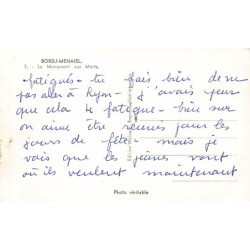 BORDJ-MENAIEL
1. - Le Monument aux Morts
fatigués - tu fais bien de ne
pas aller à Ryon - j'avais peur
que cela te fatigue - bien sûr
on aime être réunis pour les
jours de fête - mais je
vois que les jeunes vont
où ils veulent maintenant
Photo véritable